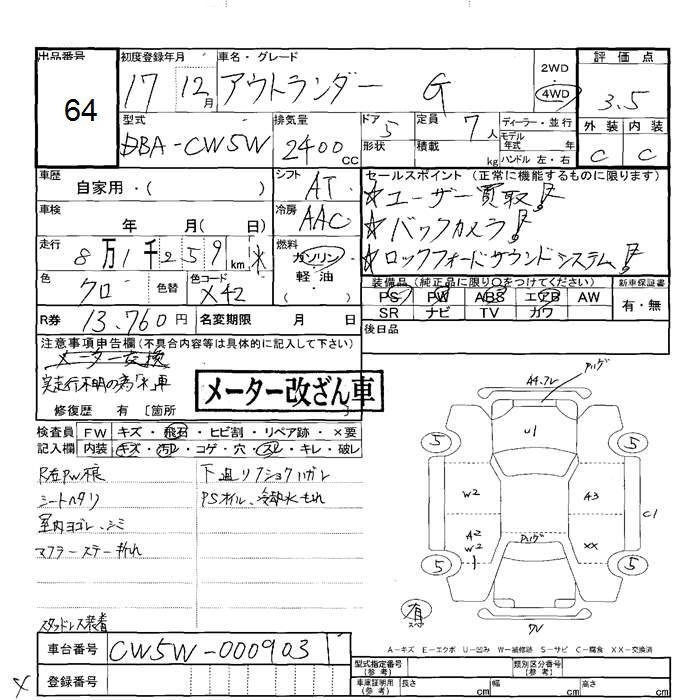 出品番号 初度登録年月 車名・グレード 2WD 評価点
64 17 12月 アウトランダー G 4WD 3.5
型式 排気量 ドア 5 定員 7人 ディーラー・並行 外装 内装
DBA-CW5W 2400cc 形状 積載 kg モデル年式 年 ハンドル 左・右 C C
車歴 シフト セールスポイント (正常に機能するものに限ります)
自家用・( ) AT ☆ユーザー買取!
車検 年 月( 日) 冷房 AAC ☆バックカメラ!
走行 8万1千259km * 燃料 ガソリン 軽油 ☆ロックフォードサウンドシステム!
色 クロ 色替 色コード X42 装備品(純正品に限り○をつけてください) 新車保証書
PS PW ABS エアB AW 有・無
SR ナビ TV カワ
R券 13,760円 名変期限 月 日 後日品
注意事項申告欄(不具合内容等は具体的に記入して下さい)
メーター交換
実走行不明の為「*」車
メーター改ざん車
修復歴 有 [箇所 ]
検査員 FW キズ・飛石・ヒビ割・リペア跡・×要
記入欄 内装 キズ・汚レ・コゲ・穴・スレ・キレ・破レ
シートヘタリ PSオイル、冷却水モレ
室内ヨゴレ、シミ
マフラーステー折れ
スタッドレス装着
A4.7V
U1
5 5
W2 A3
C1
A2
W2
1 XX
5 5
有
7V
A-キズ E-エクボ U-凹み W-補修跡 S-サビ C-腐食 XX-交換済
車台番号 CW5W-0009031
登録番号
型式指定番号(参考) 類別区分番号(参考)
車庫証明用(参考) 長さ cm 幅 cm 高さ cm